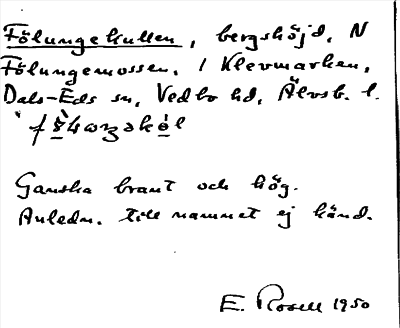 Fölungekullen, bergshöjd, N
Fölungemossen, i Klevmarken,
Dals-Eds sn, Vedbo hd, Älvsb. l.
Ganska brant och hög.
Anledn. till namnet ej känd.
E. Rosell 1950